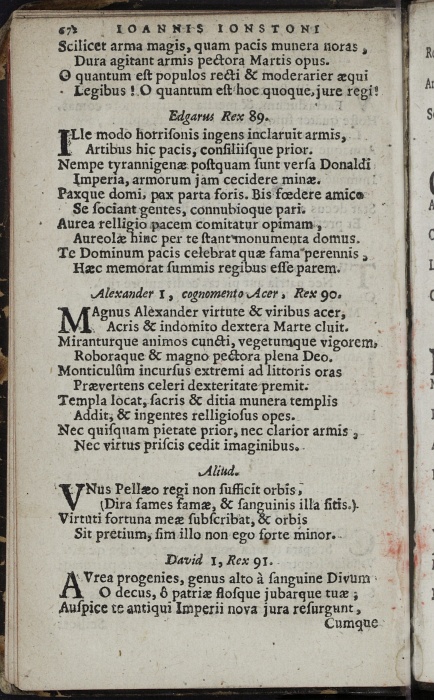 672 IOANNIS IONSTONI
Scilicet arma magis, quam pacis munera noras,
Dura agitant armis pectora Martis opus.
O quantum est populos recti & moderarier æqui
Legibus! O quantum est hoc quoque, jure regi!
Edgarus Rex 89.
ILle modo horrisonis ingens inclaruit armis,
Artibus hic pacis, consiliisque prior.
Nempe tyrannigenæ postquam sunt versa Donaldi
Imperia, armorum jam cecidere minæ.
Paxque domi, pax parta foris. Bis fœdere amico
Se sociant gentes, connubioque pari.
Aurea relligio pacem comitatur opimam,
Aureolæ hinc per te stant monumenta domus.
Te Dominum pacis celebrat quæ fama perennis,
Hæc memorat summis regibus esse parem.
Alexander 1, cognomento Acer, Rex 90.
MAgnus Alexander virtute & viribus acer,
Acris & indomito dextera Marte cluit.
Miranturque animos cuncti, vegetumque vigorem,
Roboraque & magno pectora plena Deo.
Monticulûm incursus extremi ad littoris oras
Prævertens celeri dexteritate premit.
Templa locat, sacris & ditia munera templis
Addit, & ingentes relligiosus opes.
Nec quisquam pietate prior, nec clarior armis,
Nec virtus priscis cedit imaginibus.
Aliud.
VNus Pellæo regi non sufficit orbis,
(Dira fames famæ, & sanguinis illa sitis.)
Virtuti fortuna meæ subscribat, & orbis
Sit pretium, sim illo non ego sorte minor.
David 1, Rex 91.
AVrea progenies, genus alto à sanguine Divum
O decus, ô patriæ flosque jubarque tuæ;
Auspice te antiqui Imperii nova jura resurgunt,
Cumque